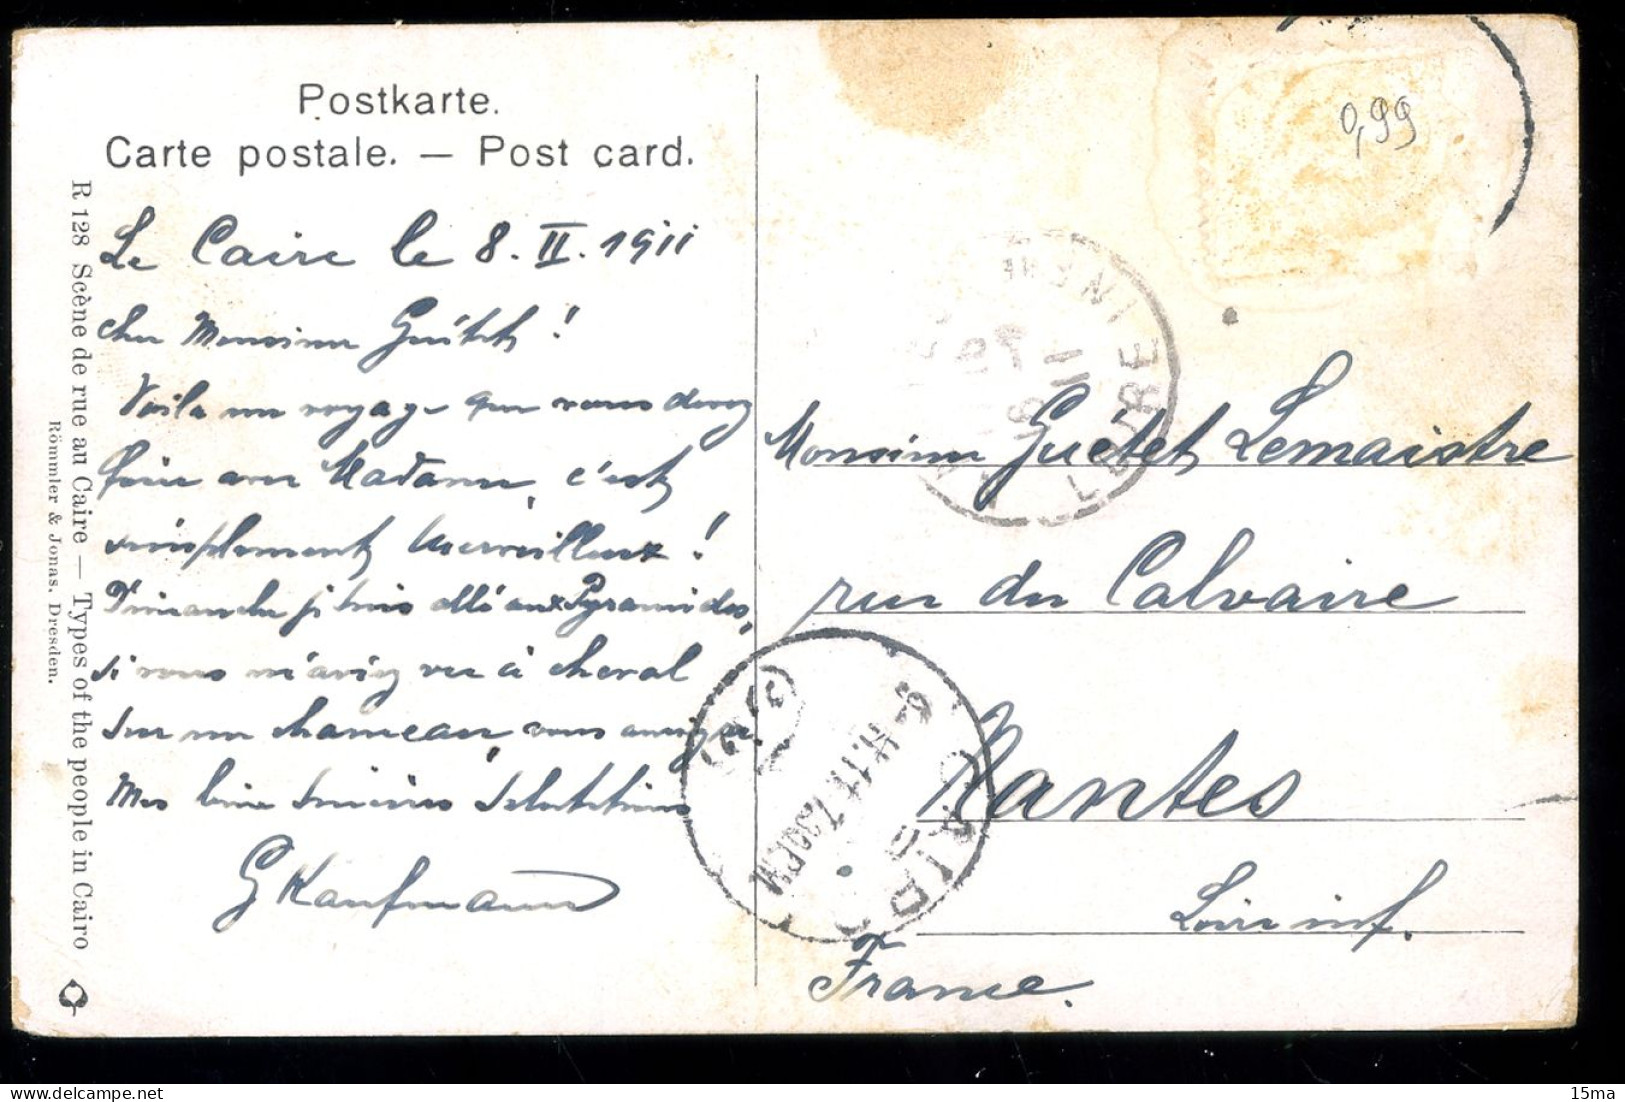 Postkarte.
Carte postale. — Post card.
Le Caire le 8. II. 1911
cher Monsieur Guétet!
Voila un voyage que vous devez
faire avec Madame, c'est
simplement merveilleux!
Dimanche j'étais allé aux Pyramides,
si vous m'aviez vu à cheval
sur un chameau, vous auriez ri
Mes bien sincères Salutations
G Kaufmann
R 128 Scène de rue au Caire — Types of the people in Cairo
Römmler & Jonas. Dresden.
0,99
Monsieur Guétet Lemaistre
rue du Calvaire
Nantes
Loire inf.
France.
LOIRE
11
CAIRO
9.II.11 7.30PM
15ma